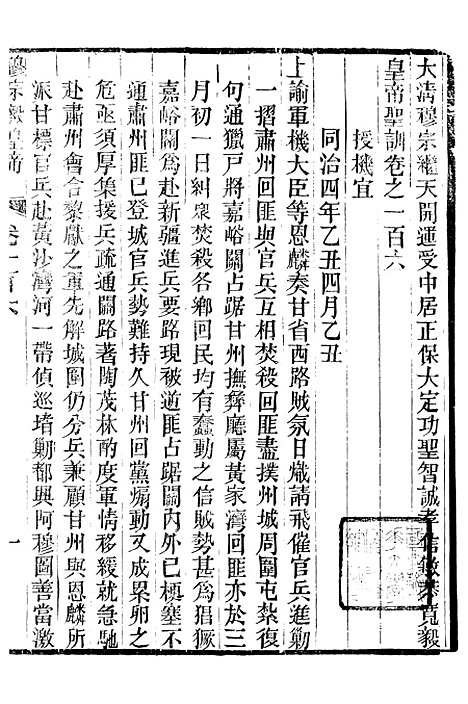 大淸穆宗繼天開運受中居正保大定功聖智誠孝信敏恭寬毅
皇帝聖訓卷之一百六
授機宜
同治四年乙丑四月乙丑
上諭軍機大臣等恩麟奏甘省西路賊氛日熾請飛催官兵進勦
一摺肅州回匪與官兵互相焚殺回匪盡撲州城周圍屯紮復
句通獵戸將嘉峪關占踞甘州撫彝廳屬黃家灣回匪亦于三
月初一日糾衆焚殺各鄕回民均有蠢動之信賊勢甚爲猖獗
嘉峪關爲赴新疆進兵要路現被逆匪占踞關内外已梗塞不
通肅州匪已登城官兵勢難持久甘州回黨煽動又成累卵之
危亟須厚集援兵疏通關路著陶茂林酌度軍情移緩就急馳
赴肅州會合黎獻之軍先解城圍仍分兵兼顧甘州與恩麟所
派甘標官兵赴黃沙灣河一帶偵巡堵勦都興阿穆圖善當激
穆宗毅皇帝 卷一百六 一